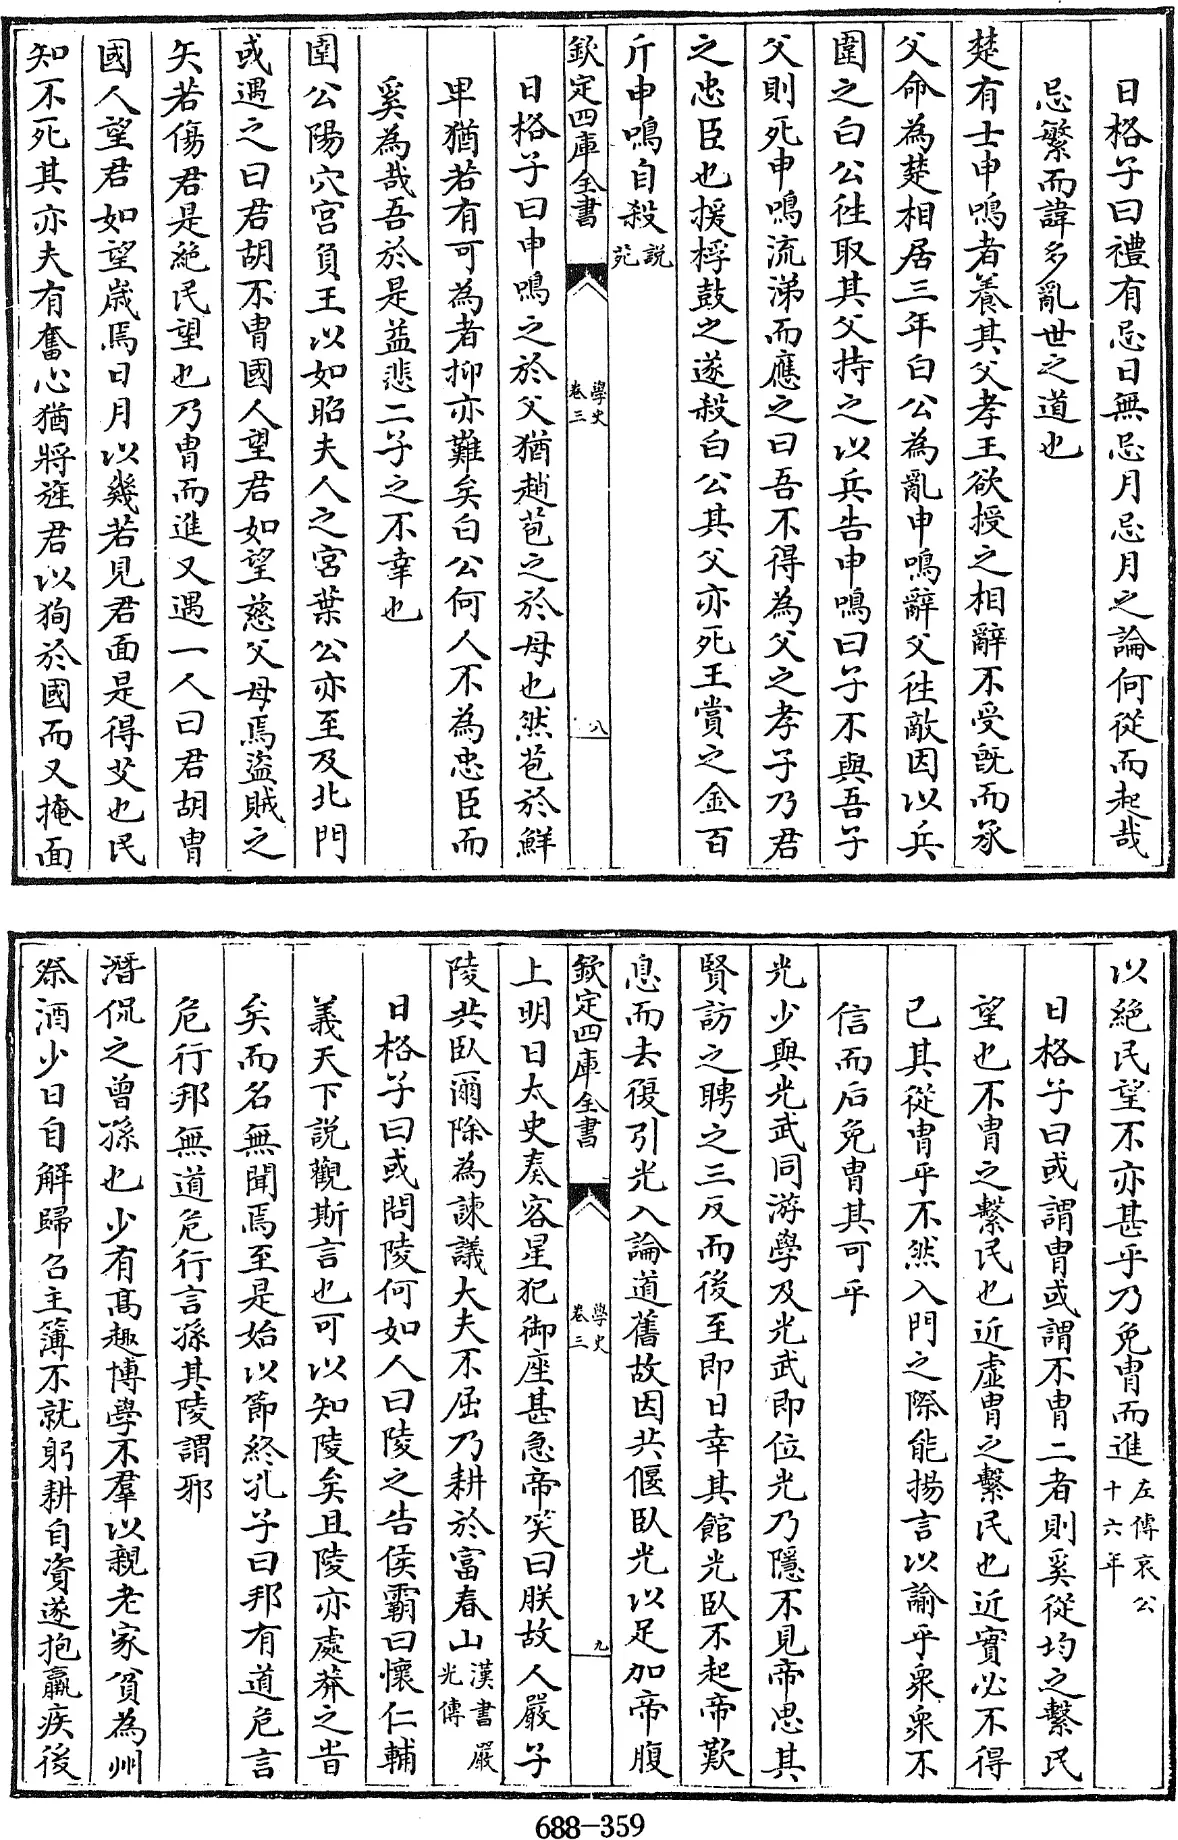 日格子曰禮有忌日無忌月忌月之論何從而起哉
忌繁而諱多亂世之道也
楚有士申鳴者養其父孝王欲授之相辭不受旣而承
父命為楚相居三年白公為亂申鳴辭父徃敵因以兵
圍之白公徃取其父持之以兵告申鳴曰子不與吾子
父則死申鳴流涕而應之曰吾不得為父之孝子乃君
之忠臣也援桴鼓之遂殺白公其父亦死王賞之金百
斤申鳴自殺說苑
欽定四庫全書
學史
卷三
八
日格子曰申鳴之於父猶趙苞之於母也然苞於鮮
卑猶若有可為者抑亦難矣白公何人不為忠臣而
奚為哉吾於是益悲二子之不幸也
圉公陽穴宮負王以如昭夫人之宮葉公亦至及北門
或遇之曰君胡不胄國人望君如望慈父母焉盜賊之
矢若傷君是絶民望也乃胄而進又遇一人曰君胡胄
國人望君如望歲焉日月以幾若見君面是得艾也民
知不死其亦夫有奮心猶將旌君以狥於國而又掩面
以絶民望不亦甚乎乃免胄而進左傳哀公十六年
日格子曰或謂胄或謂不胄二者則奚從均之繫民
望也不胄之繫民也近虛胄之繫民也近實必不得
已其從胄乎不然入門之際能揚言以諭乎衆衆不
信而后免胄其可乎
光少與光武同游學及光武即位光乃隱不見帝思其
賢訪之聘之三反而後至即日幸其館光臥不起帝歎
息而去復引光入論道舊故因共偃臥光以足加帝腹
欽定四庫全書
學史
卷三
九
上明日太史奏客星犯御座甚急帝笑曰朕故人嚴子
陵共臥爾除為諫議大夫不屈乃耕於富春山漢書嚴光傳
日格子曰或問陵何如人曰陵之告侯霸曰懷仁輔
義天下說觀斯言也可以知陵矣且陵亦處莽之旹
矣而名無聞焉至是始以節終孔子曰邦有道危言
危行邦無道危行言孫其陵謂邪
潛侃之曾孫也少有高趣博學不羣以親老家貧為州
祭酒少日自解歸召主簿不就躬耕自資遂抱羸疾後
688-359